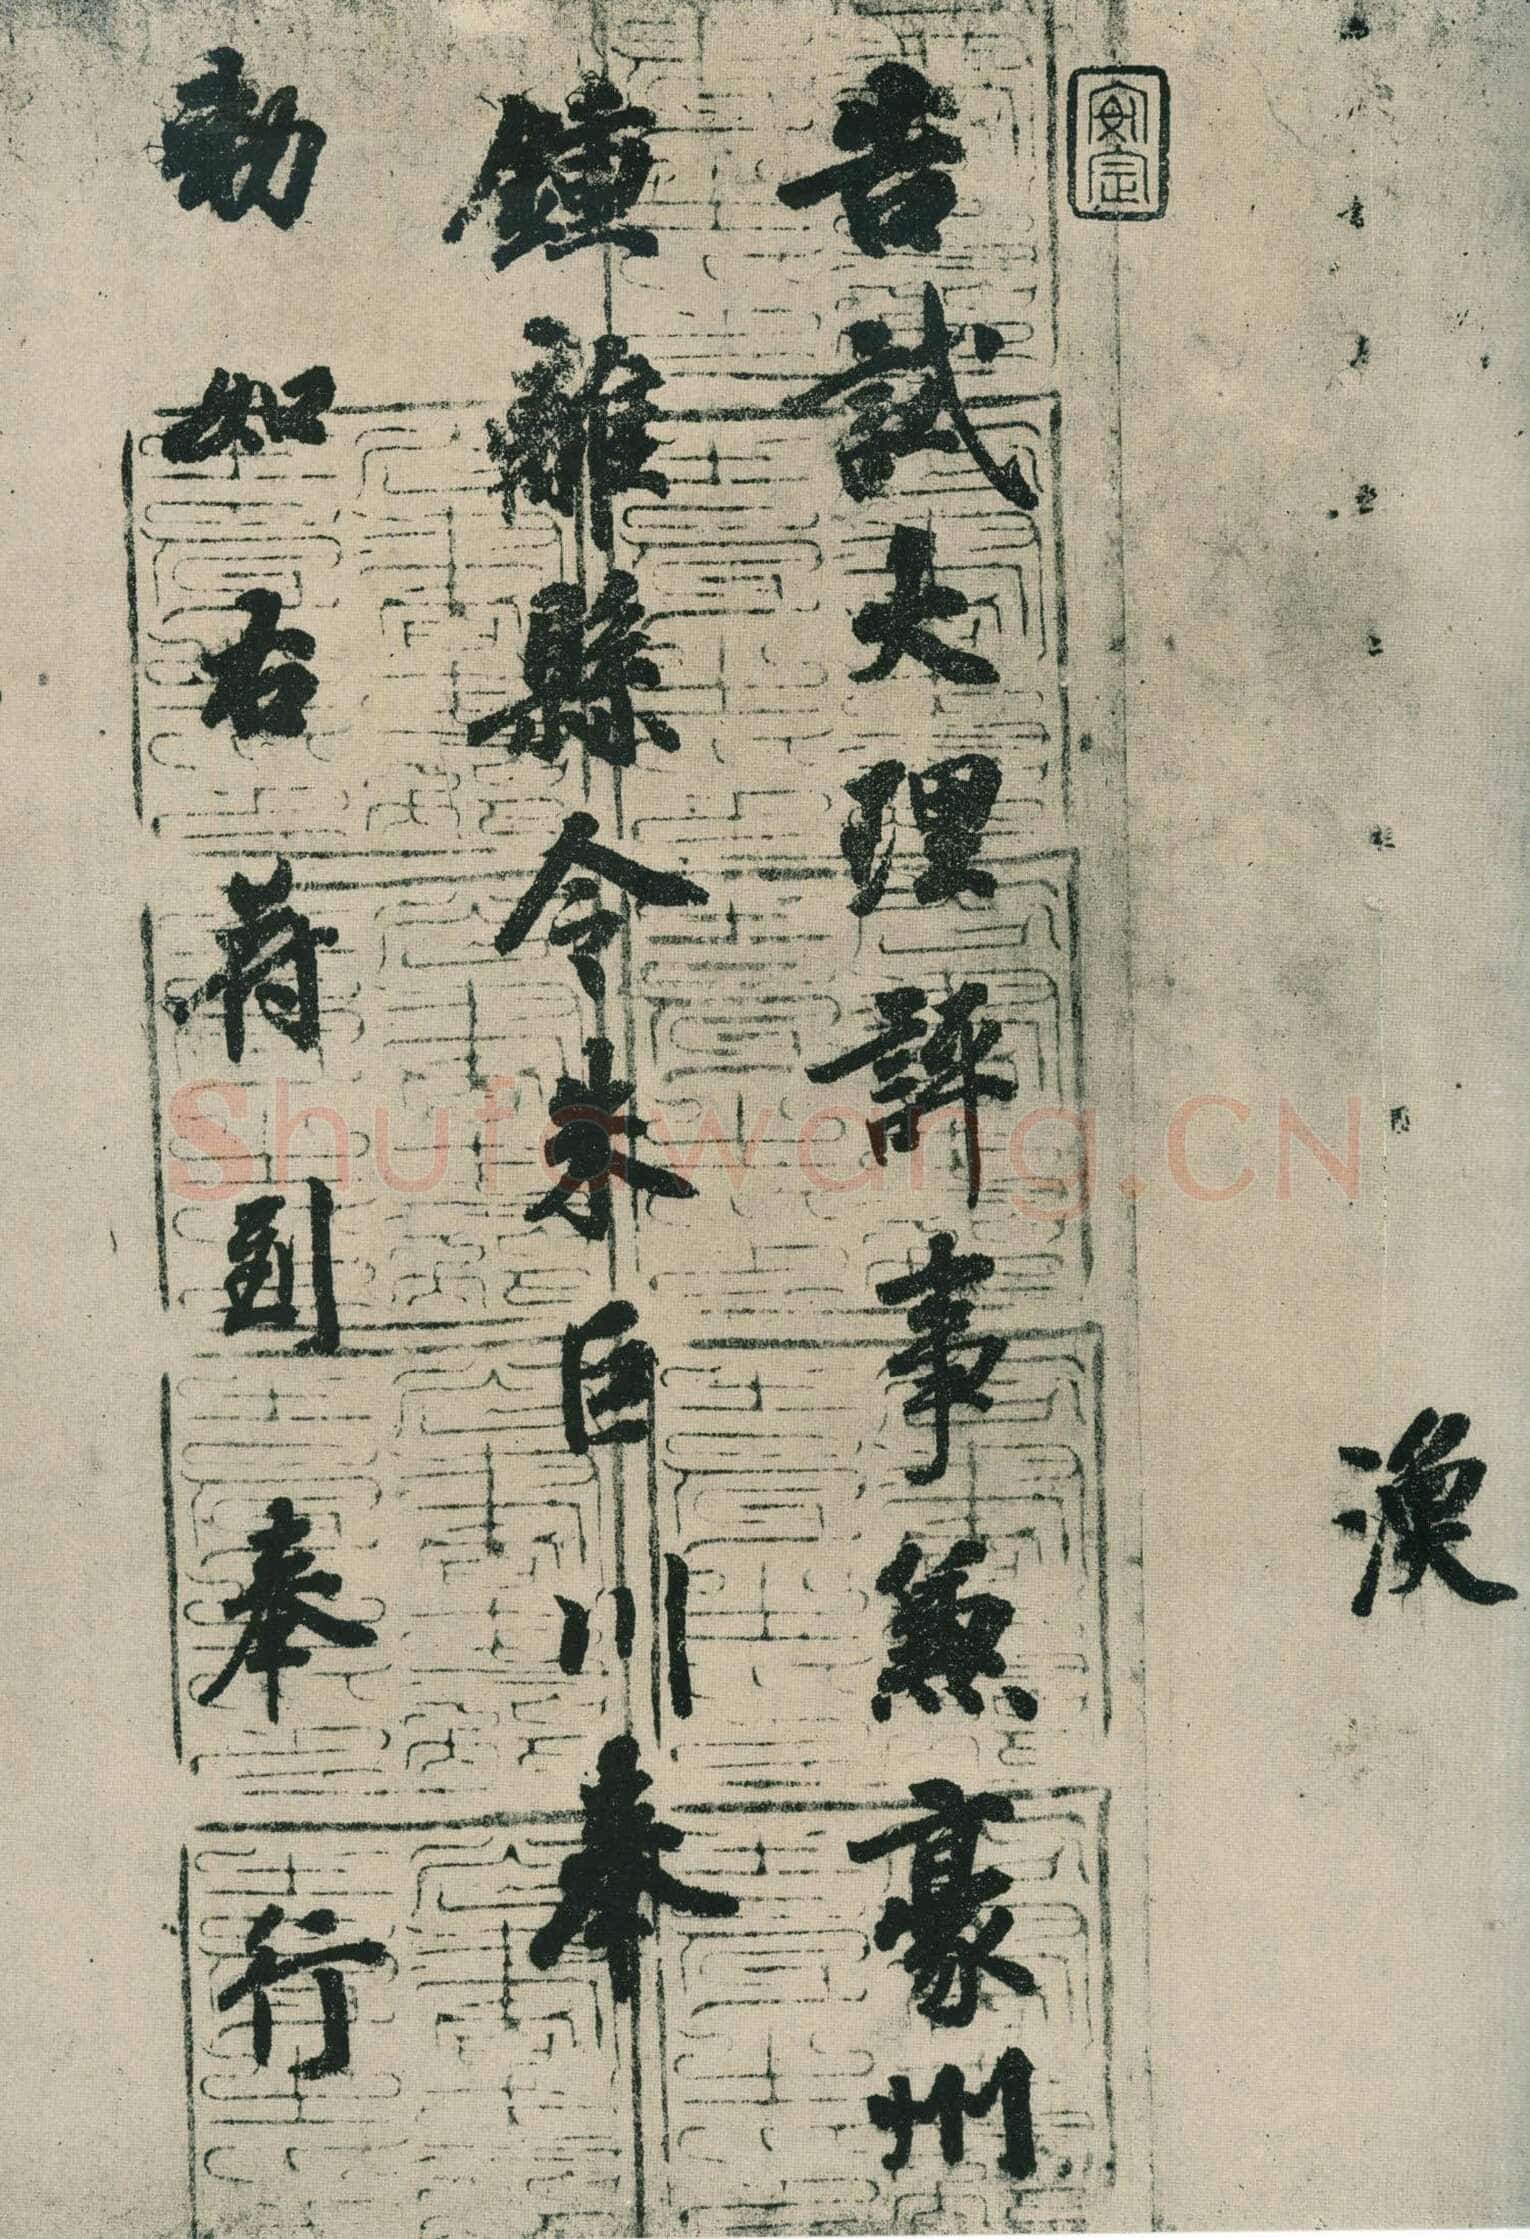 渙
安定
告試大理評事兼豪州
鍾離縣令朱巨川奉
勑如右符到奉行
Shufawang.CN